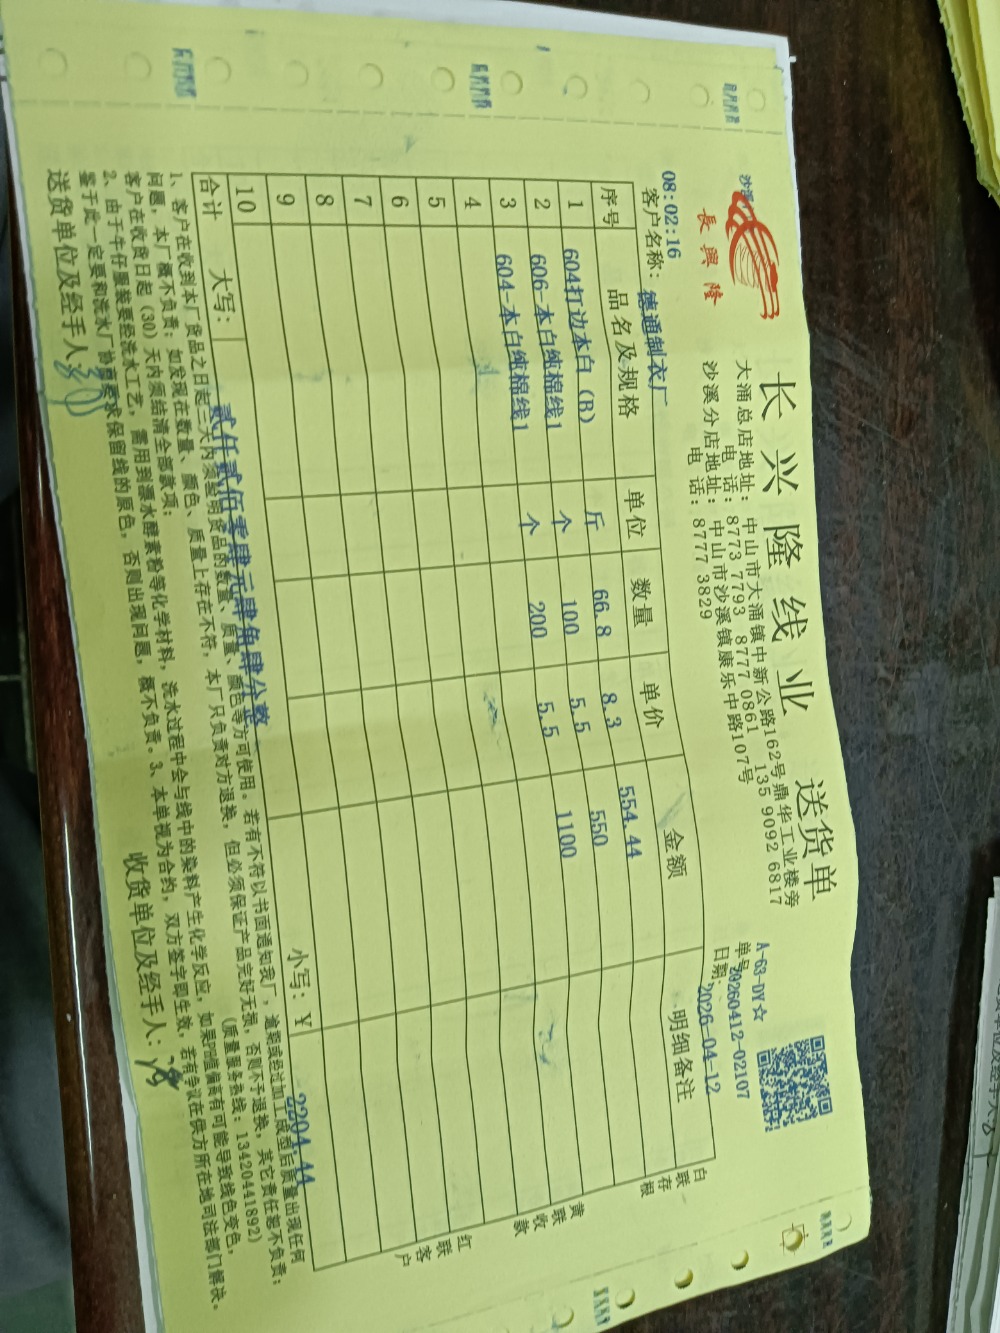 长兴隆线业 送货单
長興隆
大涌总店地址: 中山市大涌镇中新公路162号鼎华工业楼旁
电 话: 8773 7793 8777 0861 135 9092 6817
沙溪分店地址: 中山市沙溪镇康乐中路107号
电 话: 8777 3829
A-63-DY☆
单号: 20260412-02107
日期: 2026-04-12
08:02:16
客户名称: 德通制衣厂
序号 品名及规格 单位 数量 单价 金额 明细备注
1 604打边本白 (B) 斤 66.8 8.3 554.44
2 606-本白纯棉线1 个 100 5.5 550
3 604-本白纯棉线1 个 200 5.5 1100
4
5
6
7
8
9
10
合计 大写: 贰仟贰佰零肆元肆角肆分整 小写: ¥ 2204.44
白联存根
黄联收款
红联客户
1、客户在收到本厂货品之日起三天内须验明货品的数量、质量、颜色等方可使用。若有不符以书面通知我厂，逾期或经过加工成型后质量出现任何
问题，本厂概不负责；如发现在数量、颜色、质量上存在不符，本厂只负责对方退换，但必须保证产品完好无损，否则不予退换，其它责任恕不负责；
客户在收货日起（30）天内须结清全部款项； （质量服务热线：13420441892）
2、由于牛仔服装要经洗水工艺，需用到漂水酵素粉等化学材料，洗水过程中会与线中的染料产生化学反应，如果PH值偏高有可能导致线色变色，
鉴于此一定要和洗水厂协商要求保留线的原色，否则出现问题，概不负责。3、本单视为合约，双方签字即生效，若有争议在供方所在地司法部门解决。
送货单位及经手人: 收货单位及经手人: